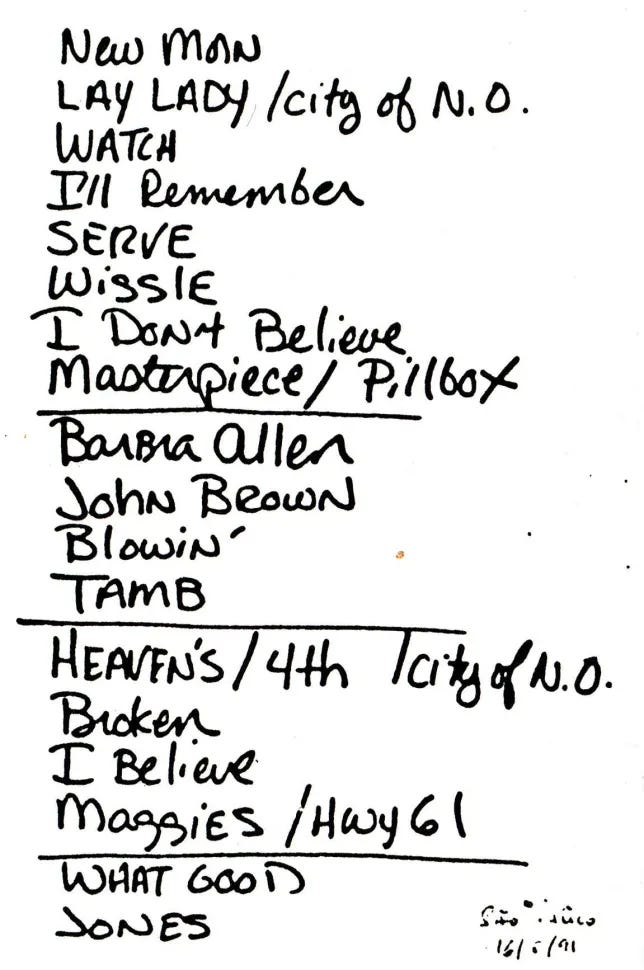 New Man
LAY LADY / city of N.O.
WATCH
I'll Remember
SERVE
WiggLE
I DoN't Believe
Masterpiece / Pillbox
BarBra Allen
John Brown
Blowin'
TAMB
HEAVEN'S / 4th / city of N.O.
Broken
I Believe
MaggiES / Hwy 61
WHAT GOOD
JONES
São
/91